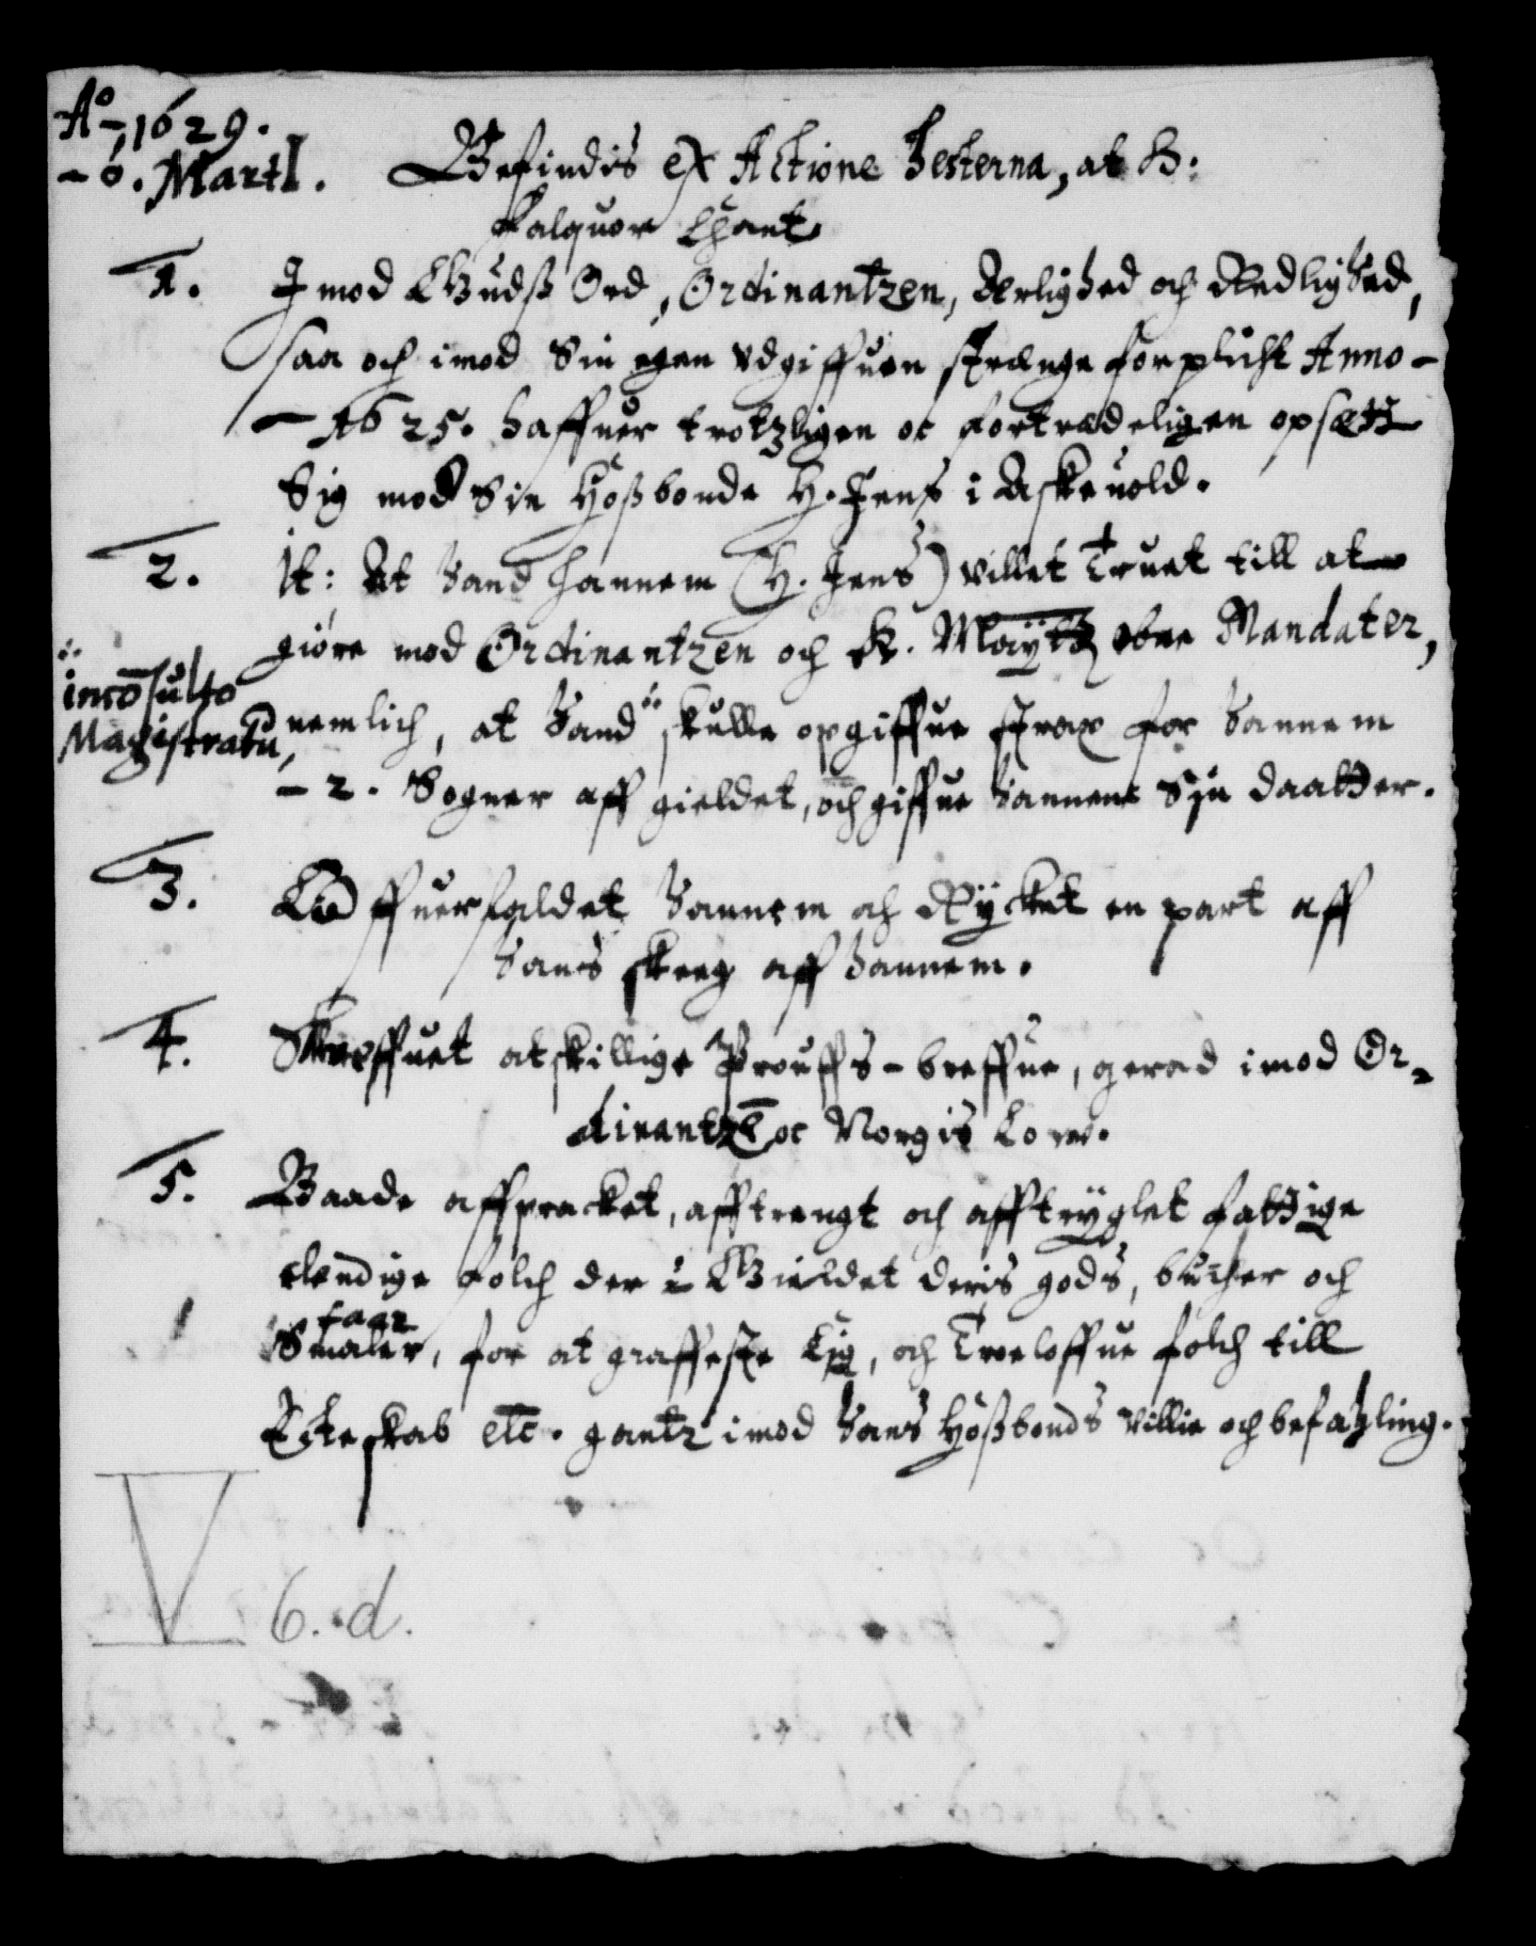 Aº 1629.
6. Martl. Befindis ex Actione Hesterna, at H:
Falquor Chant
1. I mod Gudß Ord, Ordinantzen, Ærlighed och Redlighed,
saa och imod Sin egen vdgiffuen strænge forplicht Anno
1625. haffuer trotzligen oc fortrædeligen opsætt
Sig mod Sin Hoßbonde H. Jens i Askeuold.
2. It: At hand hannem (H. Jens) villet Truet till at
giøre mod Ordinantzen och K. Maÿtz obne Mandater,
incōsulto
Magistratu,
nemlich, at hand skulle opgiffue strax for hannem
2. Sogner aff gieldet, och giffue hannem Sin daatter.
3. Offuerfaldet hannem och Rÿcket en part aff
hans skeeg aff hannem.
4. Skreffuet atskillige Prouffs-breffue, gerad imod Or-
dinantzē oc Norgis Low.
5. Baade affpracket, afftrengt och afftrÿglet fattige
elendige folch der i Gieldet deris gods, bucher och
faar
Smaler, for at graffeste Lig, och Troeloffue folch till
Ecteskab etc. gantz imod hans Hoßbonds villie och befahling.
V 6. d.